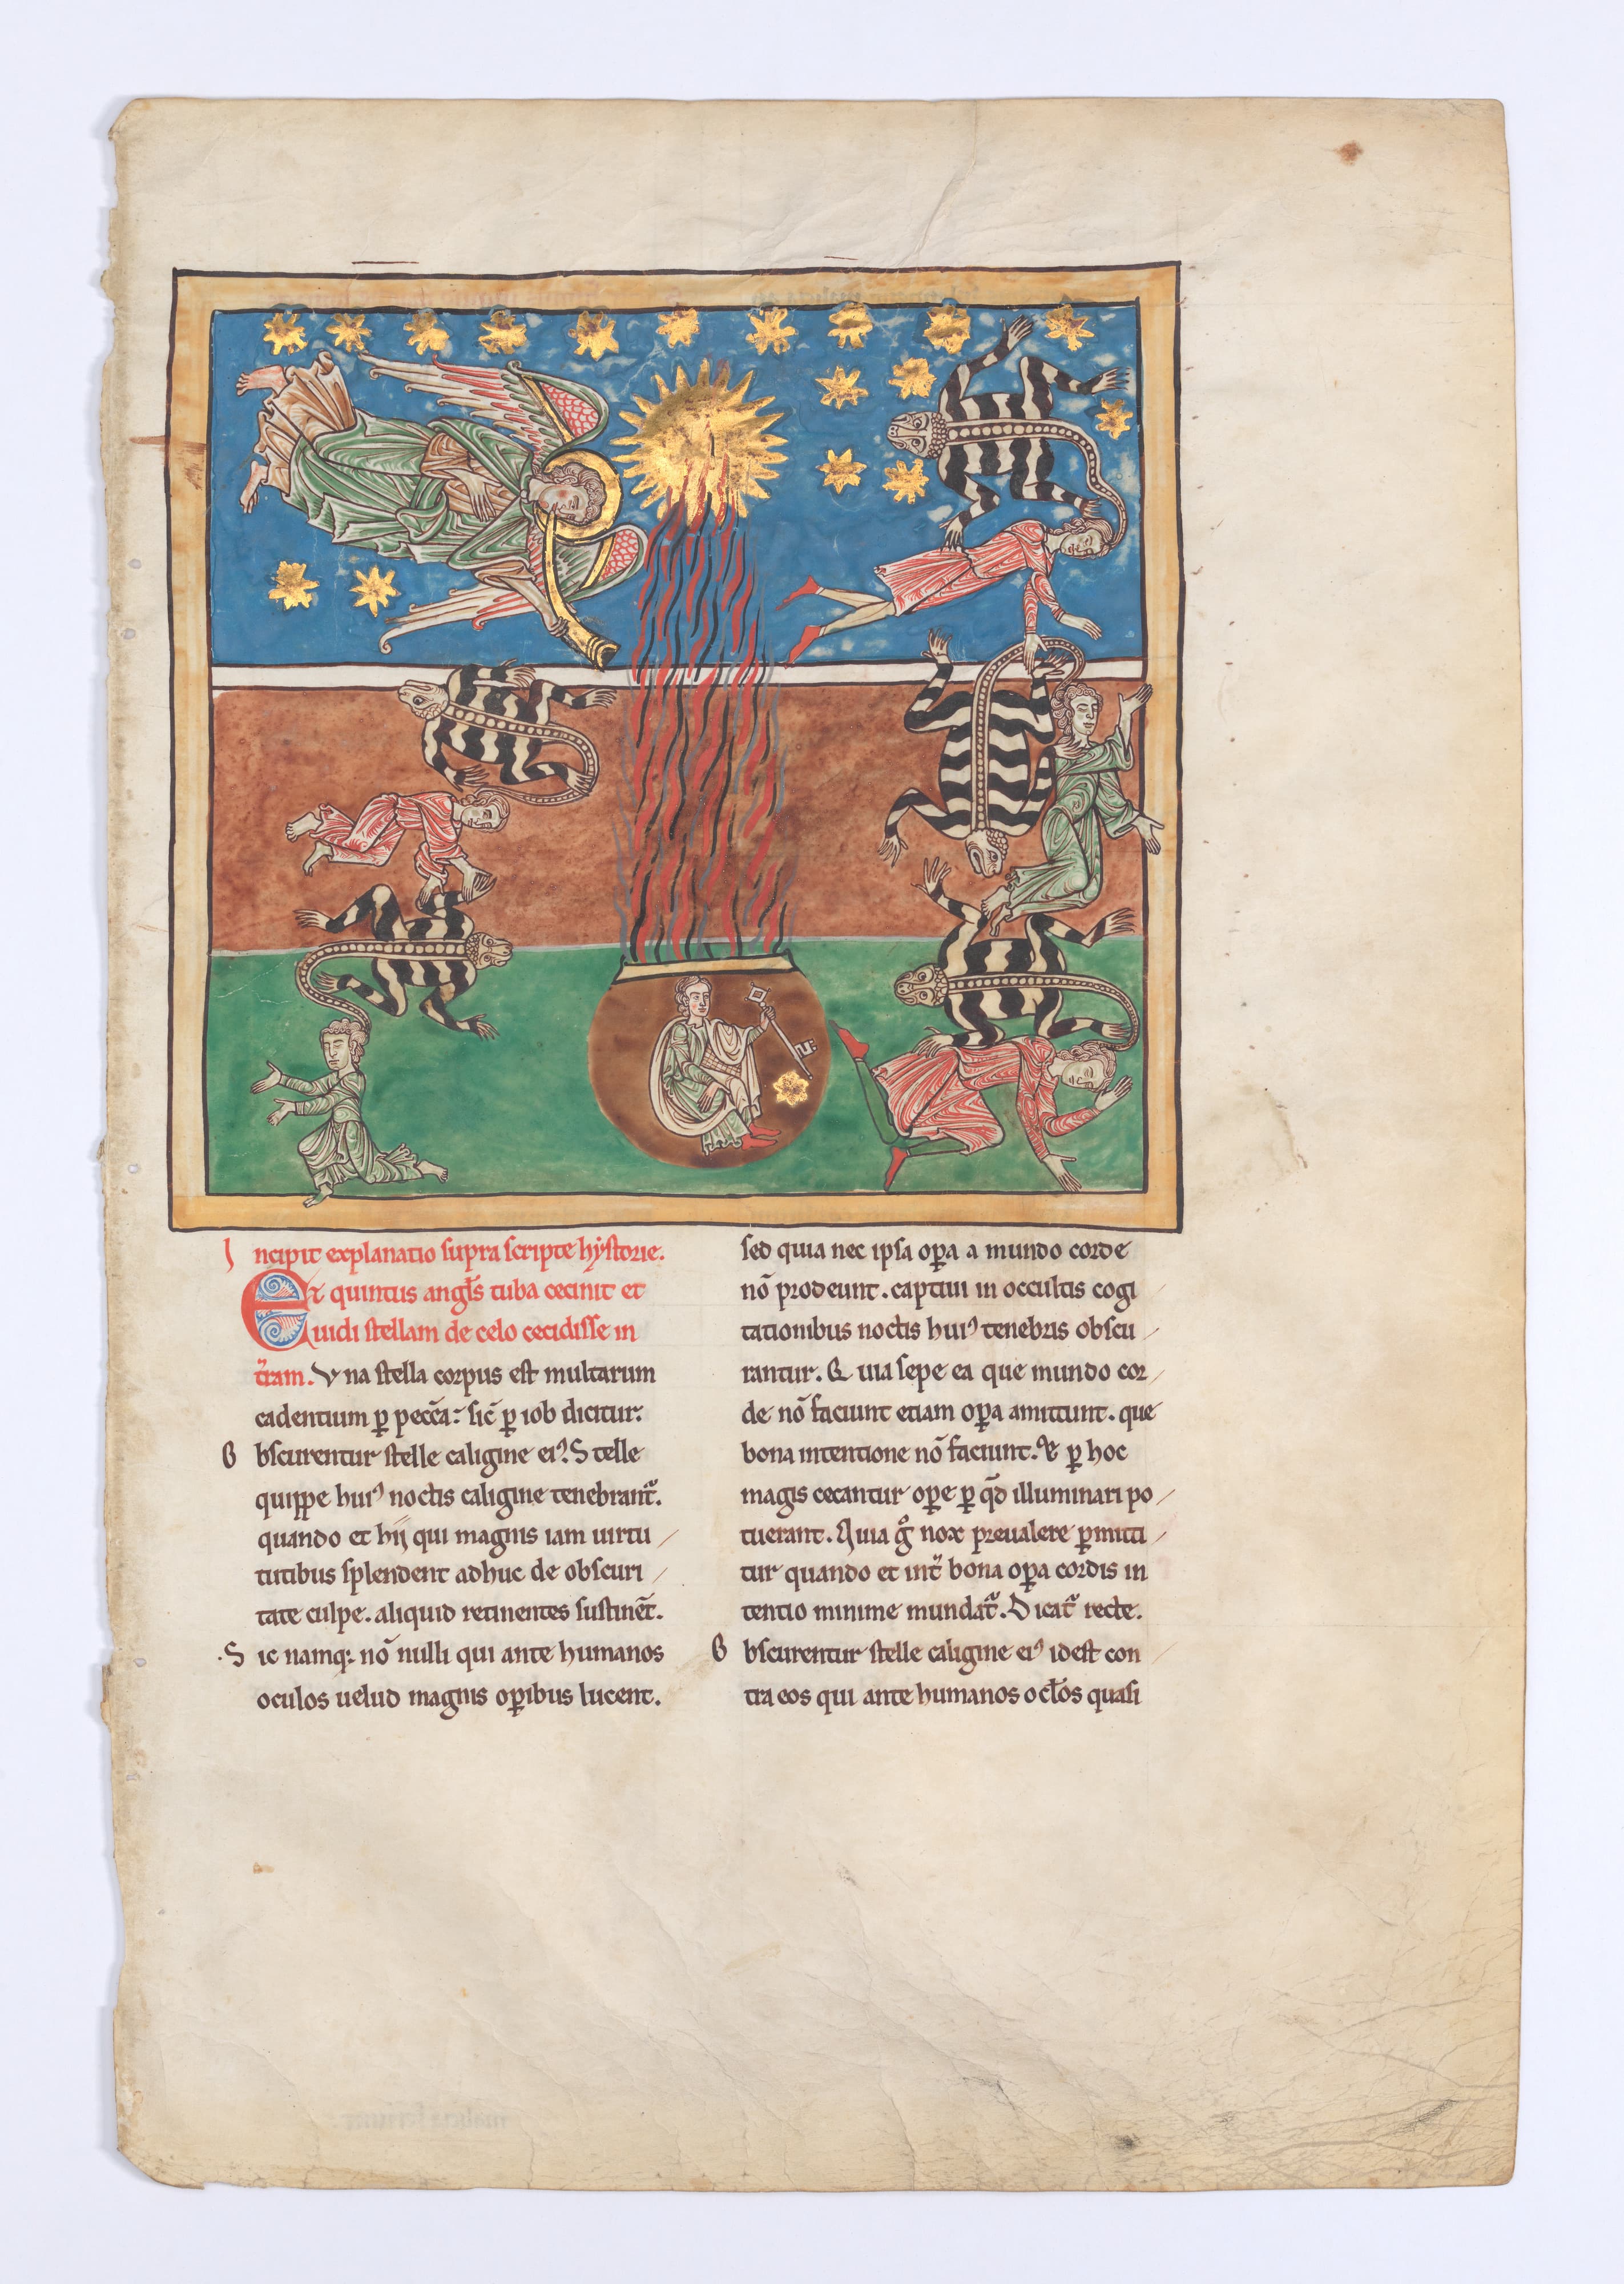 Incipit explanatio supra scripte hystorie.
Et quintus angls̄ tuba cecinit et
uidi stellam de celo cecidisse in
t̄ram. Una stella corpus est multarum
cadentium ꝑ pecc̄a: sic̄ ꝑ iob dicitur:
Obscurentur stelle caligine eiꝰ. Stelle
quippe huiꝰ noctis caligine tenebrant᷑.
quando et hij qui magnis iam uirtu
tutibus splendent adhuc de obscuri
tate culpe. aliquid retinentes sustinēt.
Sic namq: nō nulli qui ante humanos
oculos uelud magnis oꝑibus lucent.
sed quia nec ipsa oꝑa a mundo corde
nō prodeunt. captiui in occultis cogi
tationibus noctis huiꝰ tenebris obscu
rantur. Quia sepe ea que mundo cor
de nō faciunt etiam oꝑa amittunt. que
bona intentione nō faciunt. & ꝑ hoc
magis cecantur oꝑe ꝑ qd̄ illuminari po
tuerant. Quia gͦ nox preualere ꝑmitti
tur quando et int̄ bona oꝑa cordis in
tentio minime mundat᷑. Dicat᷑ recte.
Obscurentur stelle caligine eiꝰ idest con
tra eos qui ante humanos ocl̄os quasi